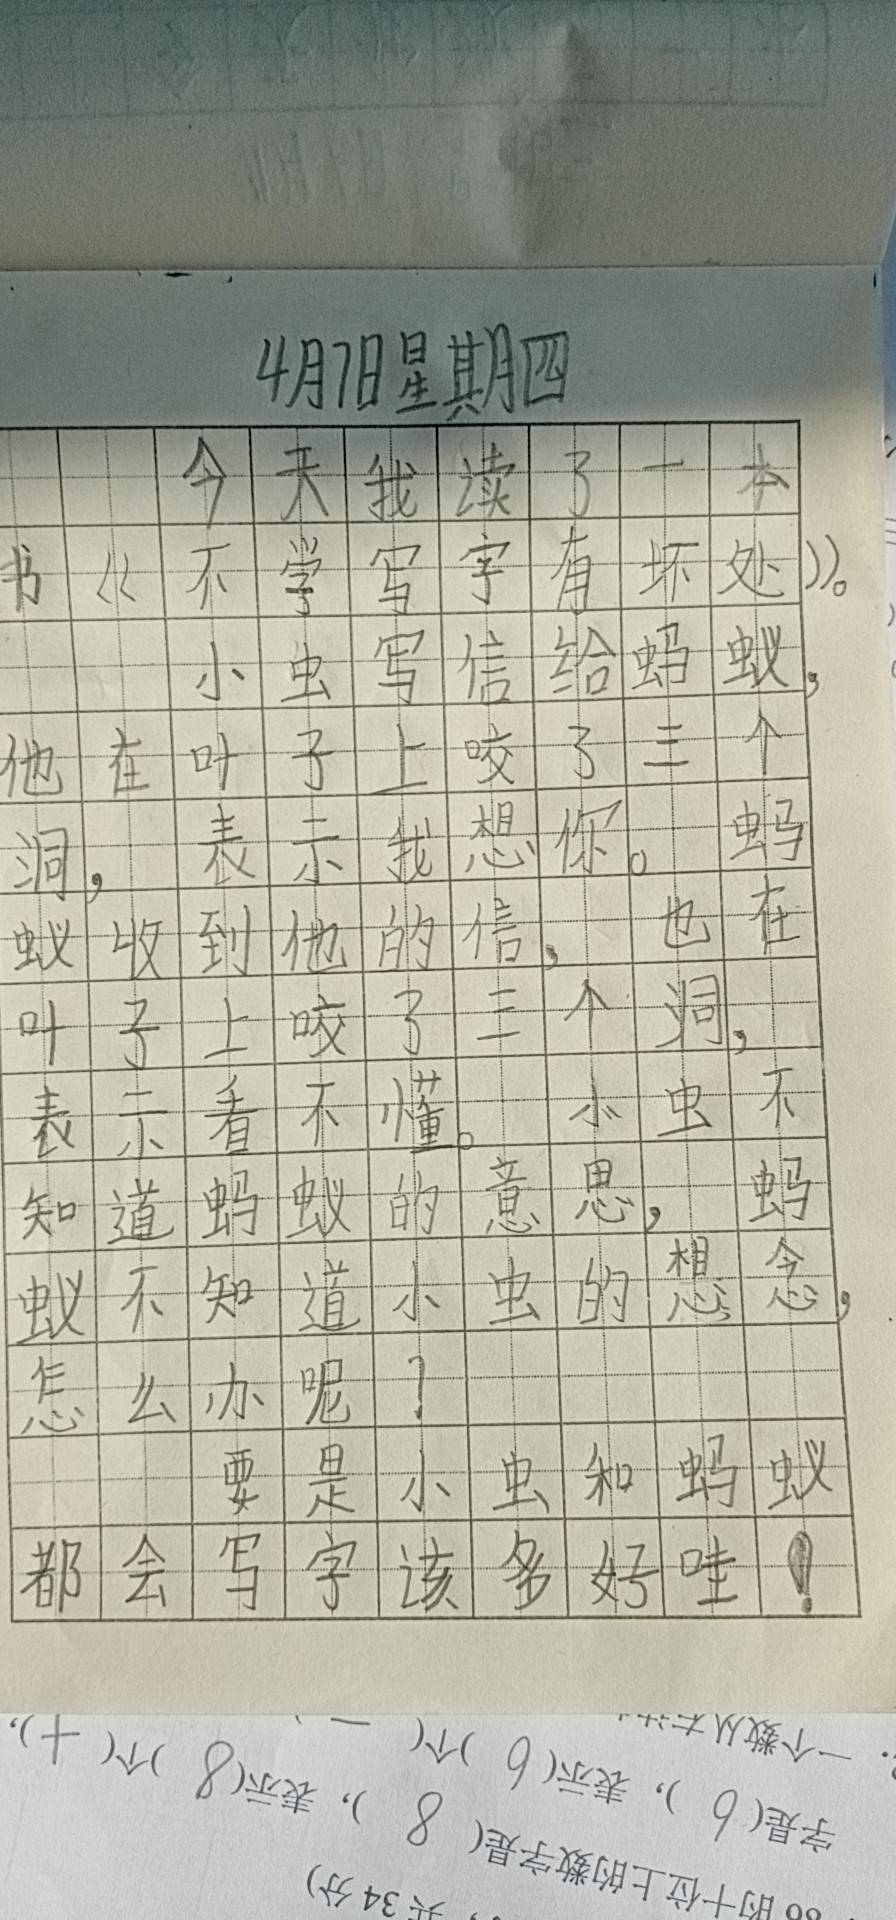 4月7日星期四
今天我读了一本
书《不学写字有坏处》。
小虫写信给蚂蚁,
他在叶子上咬了三个
洞,表示我想你。蚂
蚁收到他的信,也在
叶子上咬了三个洞,
表示看不懂。小虫不
知道蚂蚁的意思,蚂
蚁不知道小虫的想念,
怎么办呢?
要是小虫和蚂蚁
都会写字该多好哇!
共34分)
86的十位上的数字是( 8 ),表示( 8 )个( 十 ),
字是( 6 ),表示( 6 )个( 一 )
一个数从右边